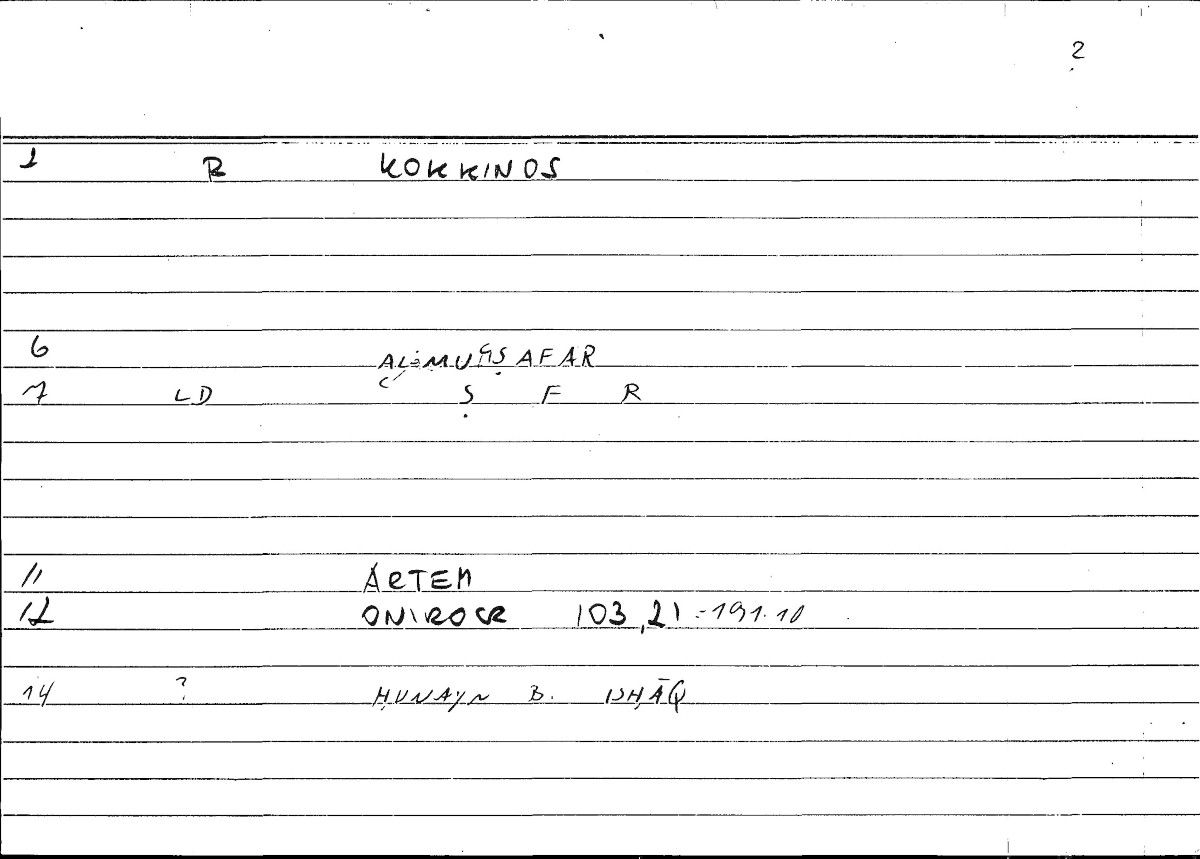 2
1 R KOKKINOS
6 AL-MUʿAṢAFAR
7 LD Ṣ F R
11 ARTEM
12 ONIROCR 103,21 = 191.10
14 ? ḤUNAYN B. ISḤĀQ